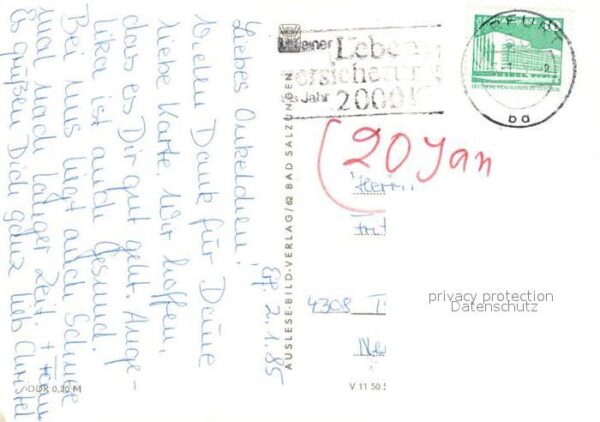 Erf. 2.1.85
Liebes Onkelchen!
Vielen Dank für Deine
liebe Karte. Wir hoffen,
dass es Dir gut geht. Ange-
lika ist auch gesund.
Bei uns liegt auch Schnee
mal nach langer Zeit.
Es grüßen Dich ganz lieb Christel
DDR 0,20 M
AUSLESE-BILD-VERLAG/62 BAD SALZUNGEN
V 11 50
einer Leben
ersicherun
Jahr 2000
ERFURT
ba
20 Jan
Herrn
4308
privacy protection
Datenschutz